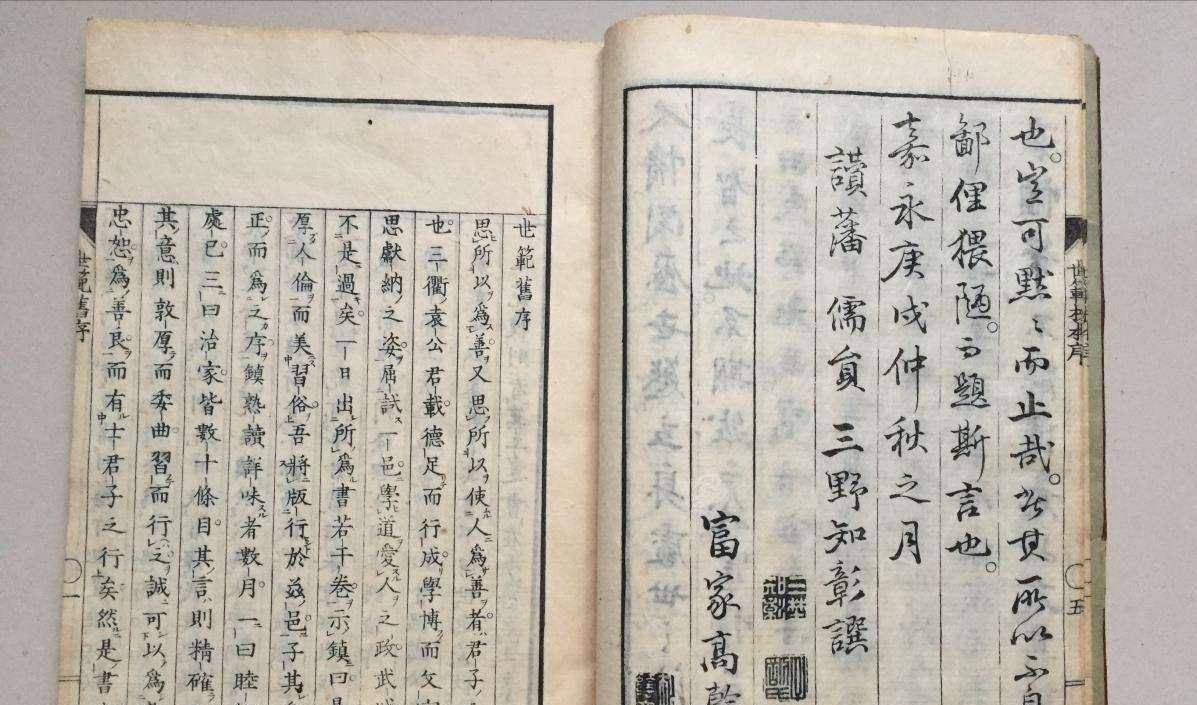 也。豈可默〻而止哉。於其所以不自
鄙俚猥陋。而題斯言也。
嘉永庚戌仲秋之月
讃藩 儒員 三野知彰譔
富家高幹
世範舊序
思所以爲善又思所以使人爲善者君子ノ
也三衢袁公君載德足而行成學博而文
思獻納之姿屈試一邑學道愛人之政武
不是過矣一日出所爲書若干卷示鎮曰是
厚人倫而美習俗吾將版行於兹邑子其
正而爲之序鎮熟讀詳味者數月一曰睦
處己三曰治家皆數十條目其言則精確
其意則敦厚而委曲習而行之誠可以爲
忠恕爲善良而有士君子之行矣然是書
世範舊序
〇一